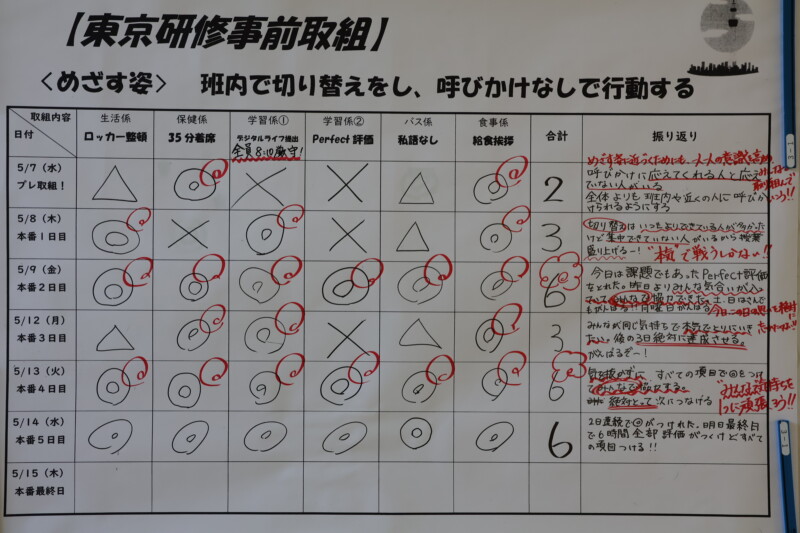 【東京研修事前取組】
＜めざす姿＞ 班内で切り替えをし、呼びかけなしで行動する
取組内容
日付
生活係
ロッカー整頓
保健係
35分着席
学習係①
デジタルライフ提出
全員8:10厳守!
学習係②
Perfect評価
バス係
私語なし
食事係
給食挨拶
合計
振り返り
5/7（水）
プレ取組！
△ ◎ × × △ ◎ 2
めざす姿に近づくためにも、一人一人の意識を高め
呼びかけに応えてくれる人と応え
ていない人がいる
全体よりも班内や近くの人に呼びか
けられるようにする
5/8（木）
本番1日目
◎ × ◎ × △ ◎ 3
切り替えはいつもよりできている人が多かった
けど集中できていない人がいるから授業
盛り上げるー！
で戦うしかない!!
5/9（金）
本番2日目
◎ ◎ ◎ ◎ ◎ ◎ 6
今日は課題でもあったPerfect評価
をとれた。昨日よりみんな気合いが入っ
ていてみんなで協力できた。
5/12（月）
本番3日目
△ ◎ ◎ × △ ◎ 3
みんなが同じ気持ちで本気でとりにいき
たい。後の3日絶対に達成させる。
がんばるぞー！
5/13（火）
本番4日目
◎ ◎ ◎ ◎ ◎ ◎ 6
気を抜かずに、すべての項目で◎をつけ
絶対とって次につなげる
気持ちを
1つに頑張ろう!!
5/14（水）
本番5日目
◎ ◎ ◎ ◎ ◎ ◎ 6
2日連続で◎がつけれた。明日最終日
で6時間全部評価がつくけどすべて
の項目つける!!
5/15（木）
本番最終日